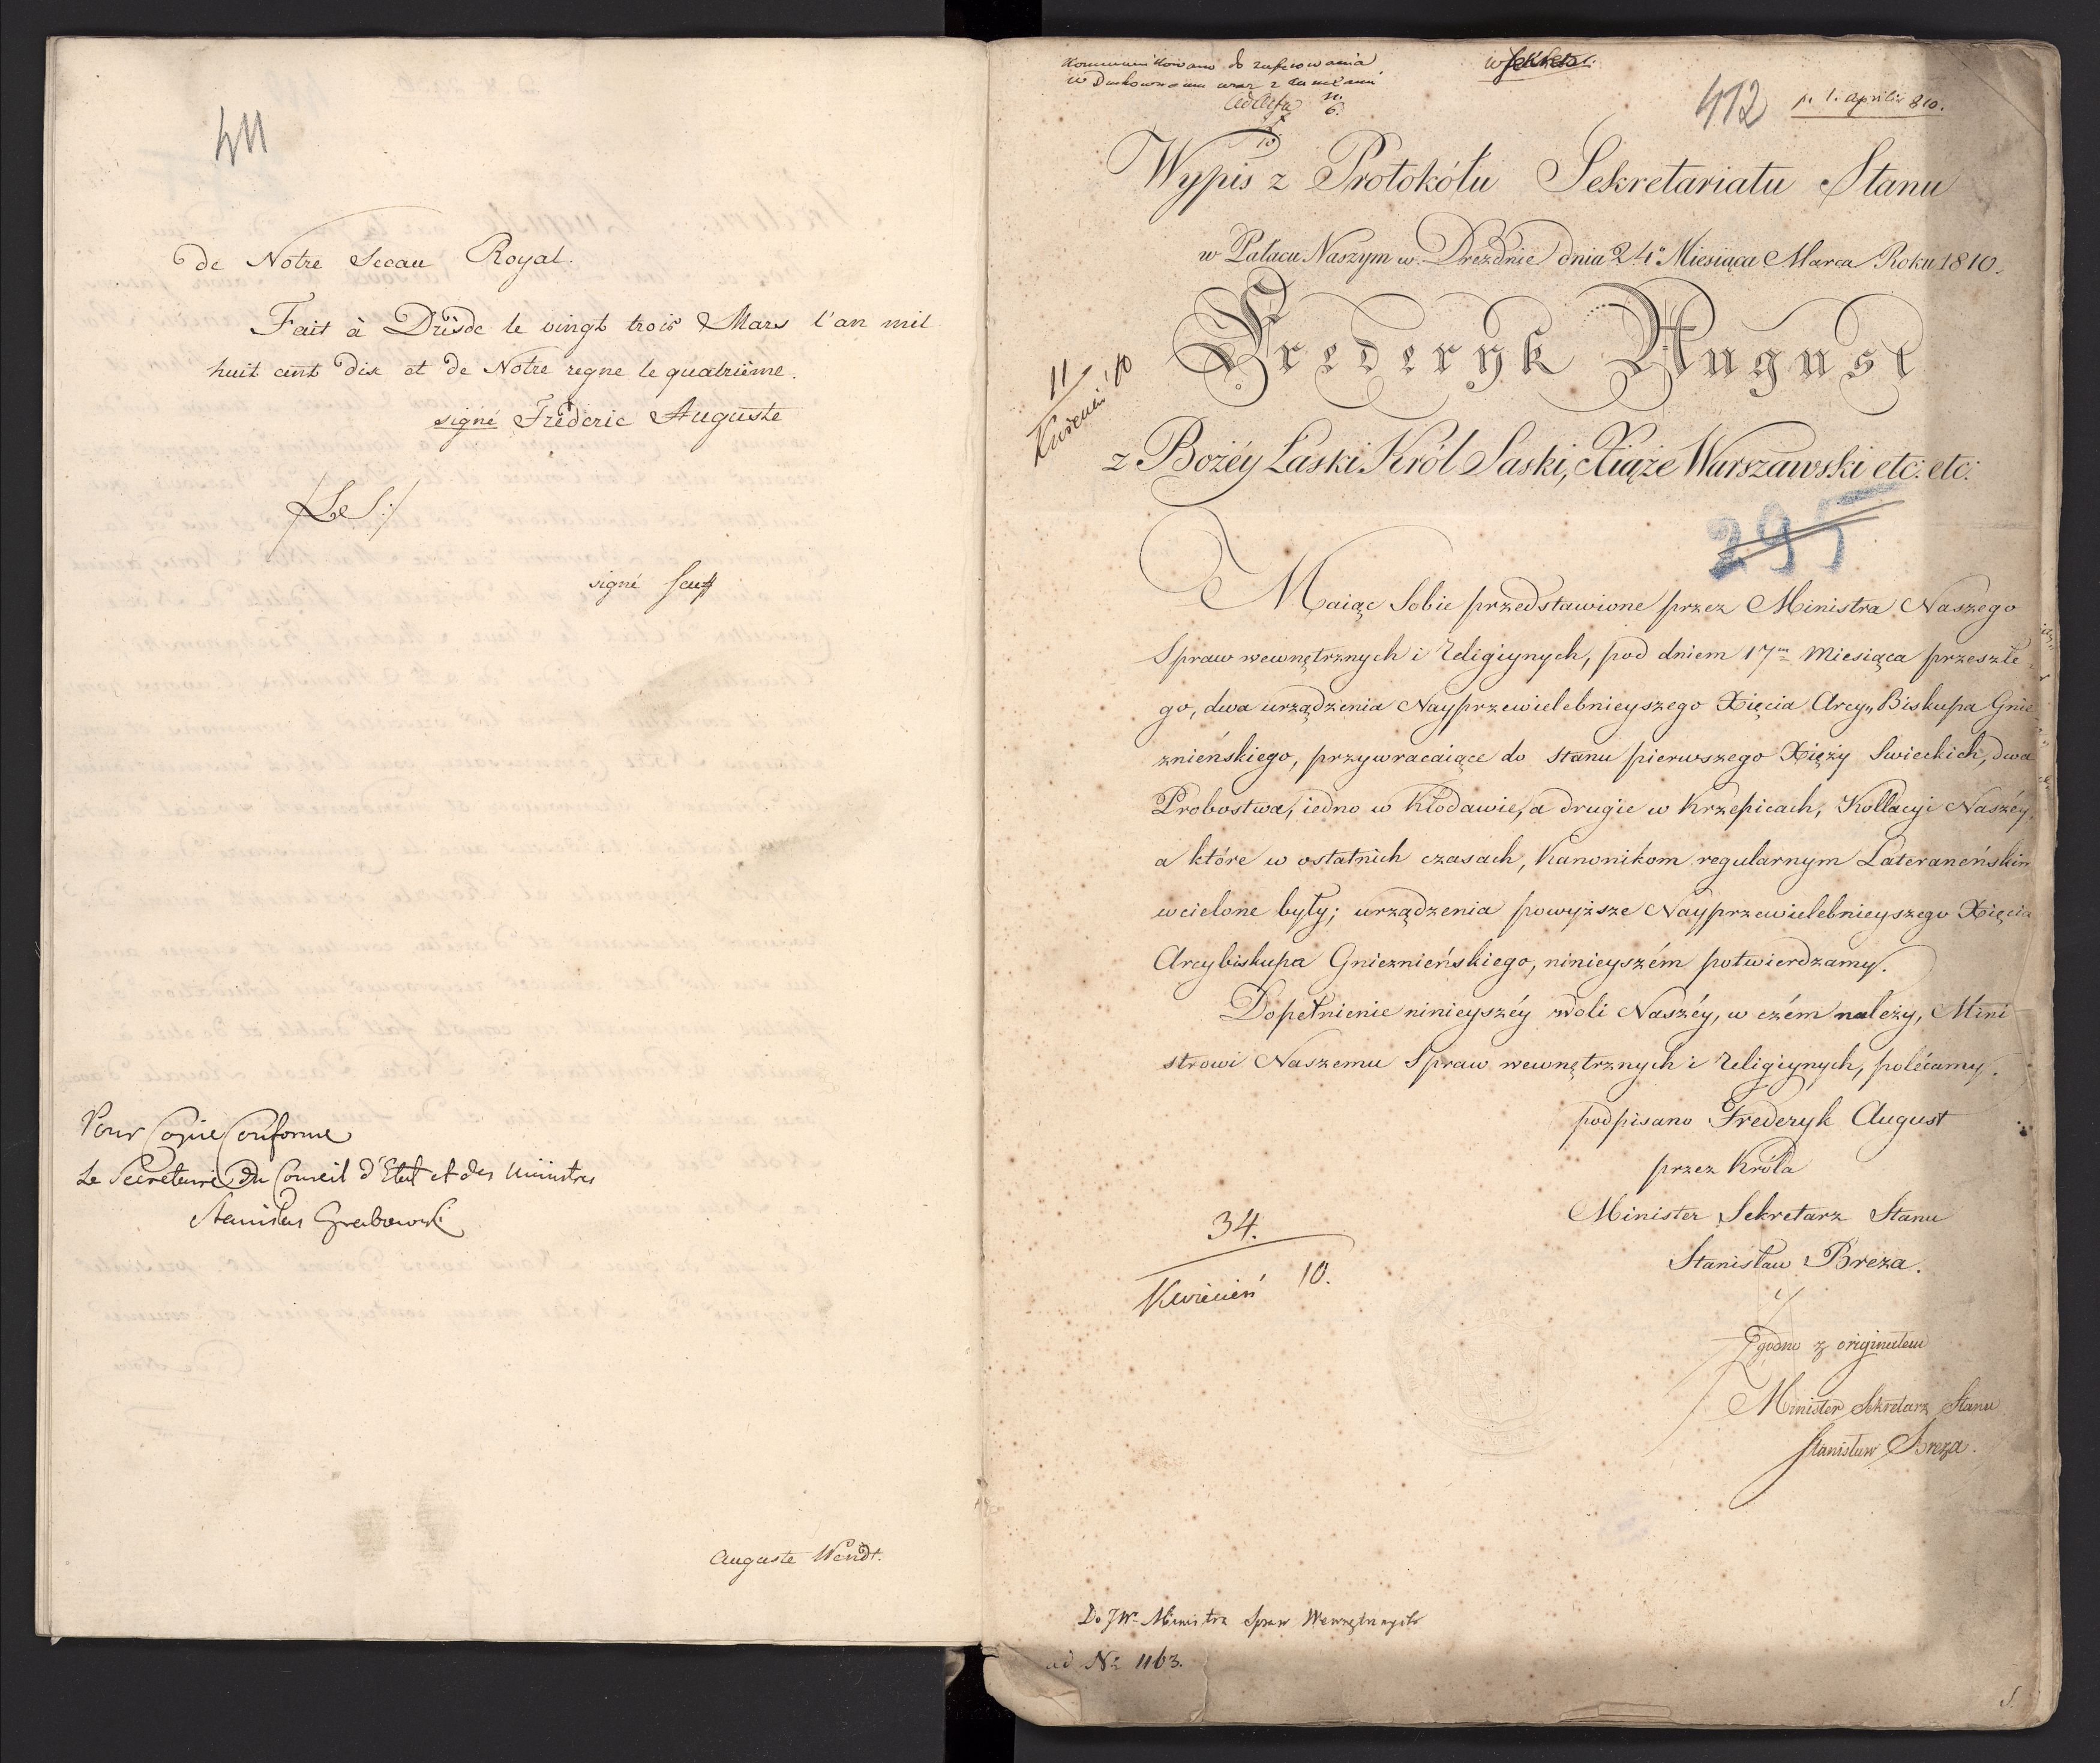 411
de Notre Sceau Royal.
Fait à Dresde le vingt trois Mars l'an mil
huit cent dix et de Notre regne le quatrième.
signé Fréderic Auguste
/L. S:/
signé
Pour Copie Conforme
Le Secretaire du Conseil d'Etat et des Ministres
Stanislas Grabowski
Auguste Wendt.
Kommunikowano do
w Duchownemu wraz z
ad acta n. 6.
412
p. 1. Aprilis 810.
Wypis z Protokółu Sekretariatu Stanu
w Pałacu Naszym w Dreźdnie dnia 24º Miesiąca Marca Roku 1810.
Frederyk August
11
Kwiecień 10
z Bożéy Łaski Król Saski, Xiąże Warszawski etc: etc:
295
Maiąc Sobie przedstawione przez Ministra Naszego
Spraw wewnętrznych i Religiynych, pod dniem 17m Miesiąca przeszłe
go, dwa urządzenia Nayprzewielebnieyszego Xięcia Arcy„Biskupa Gnie
znieńskiego, przywracaiące do stanu pierwszego Xięży Swieckich, dwa
Probostwa, iedno w Kłodawie, a drugie w Krzepicach, Kollacyi Naszéy,
a które w ostatnich czasach, Kanonikom regularnym Lateraneńskim
wcielone były; urządzenia powyższe Nayprzewielebnieyszego Xięcia
Arcybiskupa Gnieznieńskiego, ninieyszém potwierdzamy.
Dopełnienie ninieyszéy woli Naszéy, w czém należy, Mini
strowi Naszemu Spraw wewnętrznych i Religiynych, polécamy.
podpisano Frederyk August
przez Króla
Minister Sekretarz Stanu
Stanisław Breza.
34.
Kwiecień 10.
Zgodno z originałem
Minister Sekretarz Stanu
Stanisław Breza.
Do JW. Ministra Spraw Wewnętrznych
ad Nº 1163.